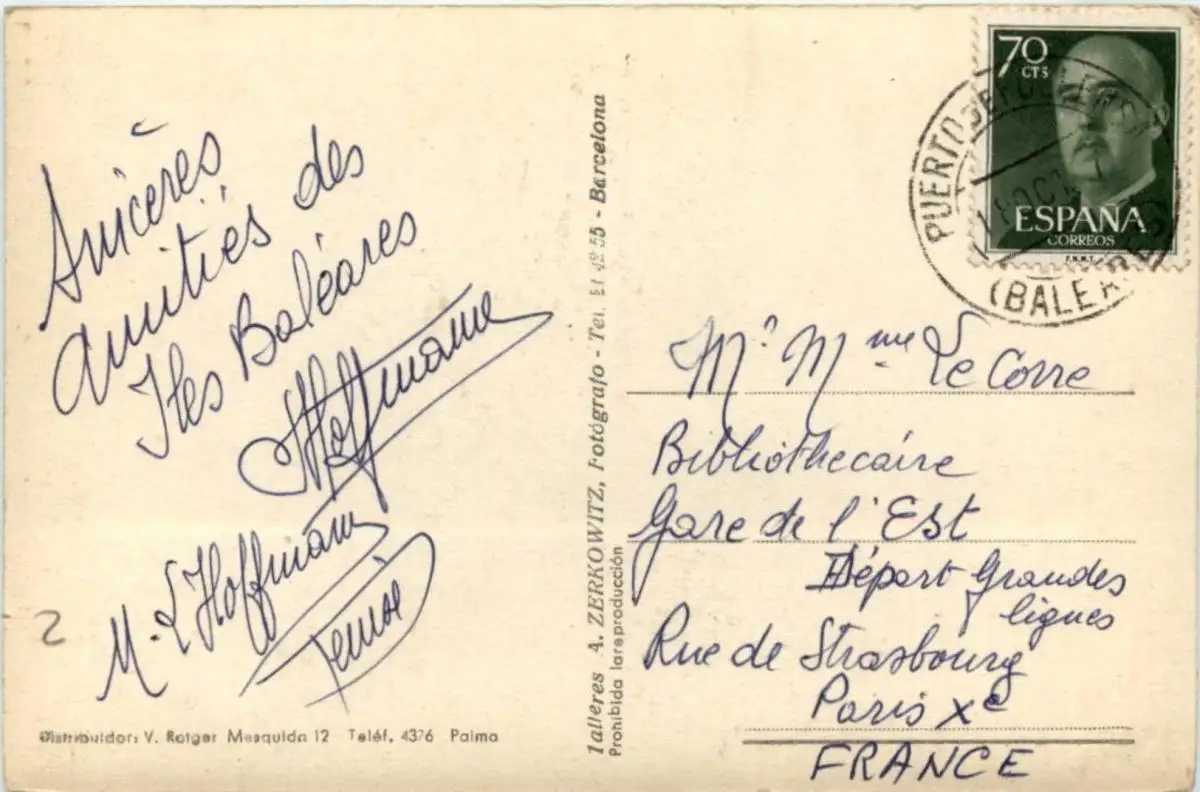 Sincères
amitiés des
Iles Baléares
Hoffmann
M. L Hoffmann
Distribuidor: V. Rotger Mesquida 12 Teléf. 4376 Palma
2
Talleres A. ZERKOWITZ, Fotógrafo - Tel. 21 42 55 - Barcelona
Prohibida la reproducción
70
CTS
ESPAÑA
CORREOS
F.N.M.T.
PUERTO DE
(BALEARES)
Mr Mme Le Corre
Bibliothecaire
Gare de l'Est
Départ Grandes
lignes
Rue de Strasbourg
Paris Xe
FRANCE